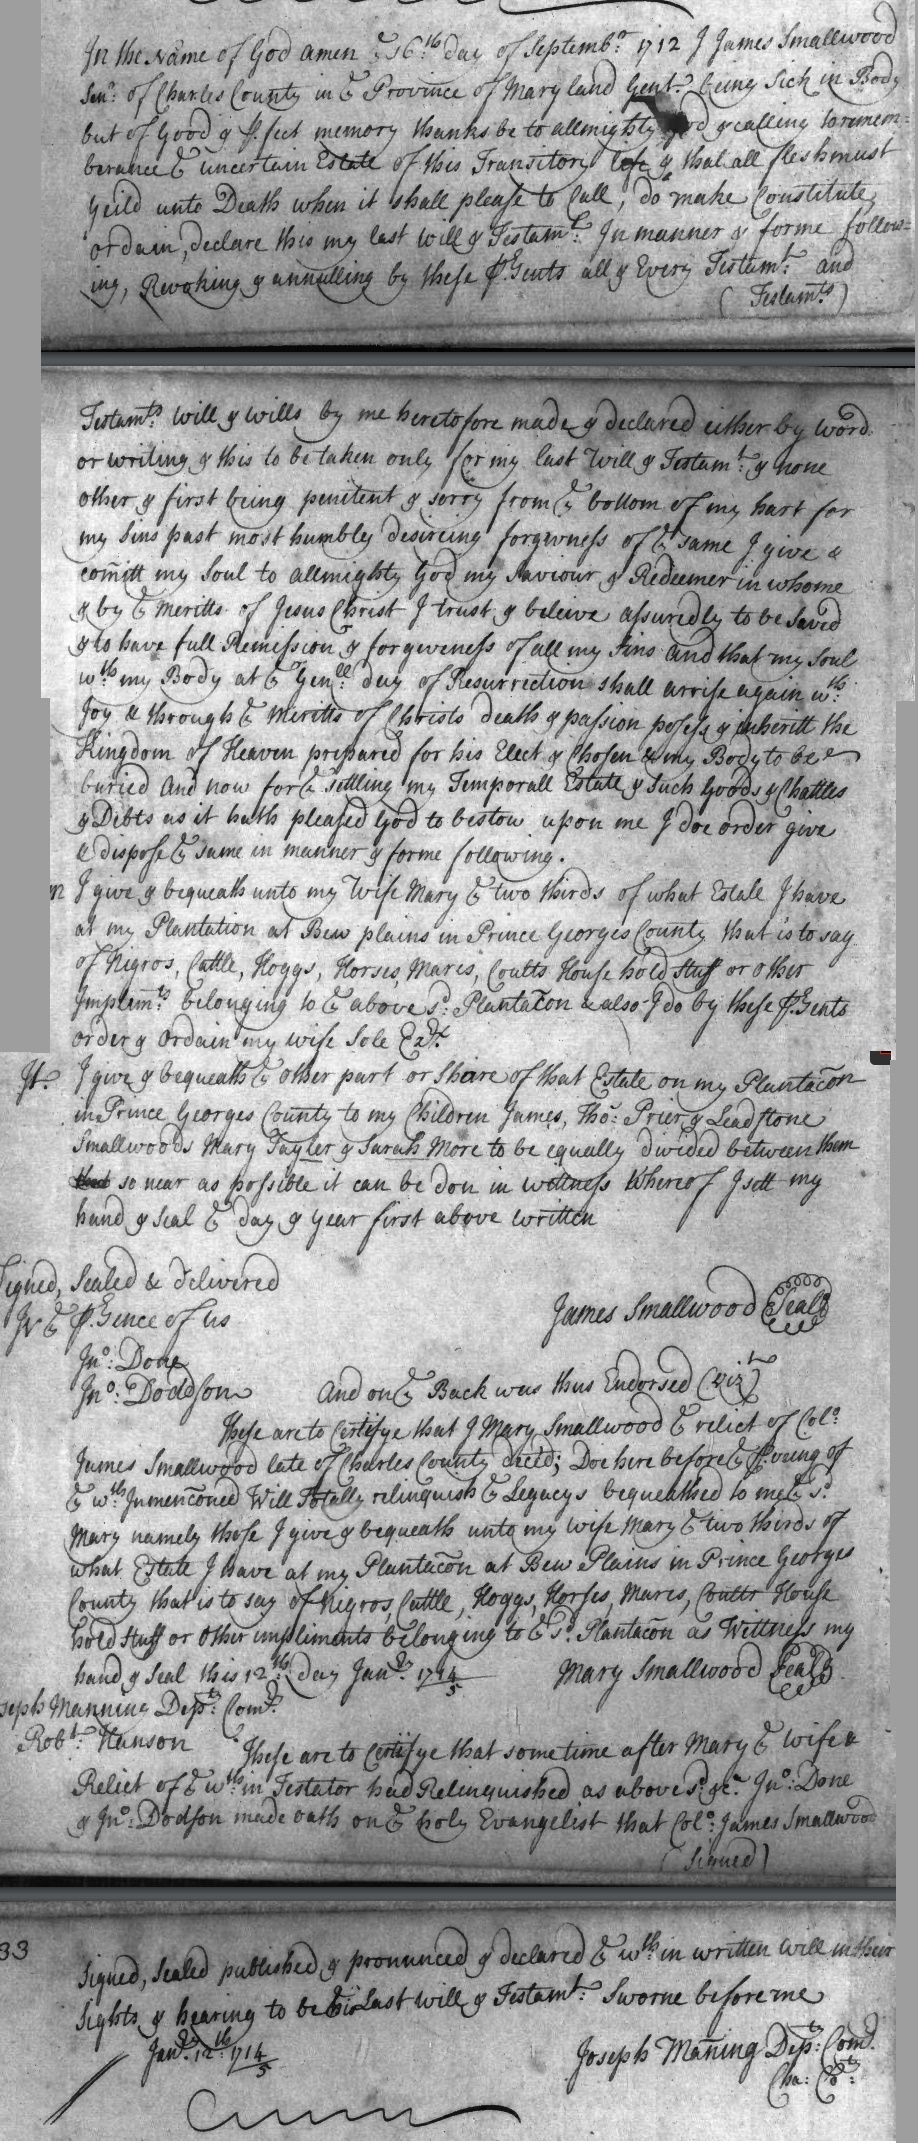 In the Name of God amen ye 16th day of Septembr 1712 I James Smallwood
Senr: of Charles County in ye Province of Maryland Gent: being Sick in Body
but of Good & p.fect memory thanks be to allmighty God & calling to remem=
berance ye uncertain Estate of this Transitory Life & that all flesh must
Yeild unto Death when it shall please to Call, do make Constitute,
ordain, declare this my last will & Testamt: In manner & forme follow=
ing, Revoking & annulling by these p.sents all & Every Testamt: and
(Testamts)
Testamts: will & wills by me heretofore made & declared either by word
or writing & this to be taken only for my last Will & Testamt: & none
other & first being penitent & sorry from ye bottom of my hart for
my sins past most humbly desireing forgivness of ye same I give &
comitt my Soul to allmighty God my Saviour & Redeemer in whome
& by ye Meritts of Jesus Christ I trust & beleive assuredly to be Saved
& to have full Remission & forgiveness of all my Sins and that my Soul
wth my Body at ye Genll: day of Resurrection shall arrise again wth:
Joy & through ye Meritts of Christs death & passion posess & inheritt the
Kingdom of Heaven prepared for his Elect & Chosen & my Body to be
buried And now for ye settling my Temporall Estate & Such Goods & Chattles
& Debts as it hath pleased God to bestow upon me I doe order give
& dispose ye same in manner & forme following.
I give & bequeath unto my Wife Mary ye two thirds of what Estate I have
at my Plantation at Bew plains in Prince Georges County that is to say
of Nigros, Cattle, Hoggs, Horses, Mares, Coults House hold stuff or other
Implemts: belonging to ye above sd: Plantacon & also I do by these p.sents
order & ordain my wife Sole Extx.
It. I give & bequeath ye other part or Share of that Estate on my Plantacon
in Prince Georges County to my Children James, Tho: Prier & Leadstone
Smallwoods Mary Tayler & Sarah More to be equally divided between them
so near as possible it can be don in wittness Whereof I sett my
hand & Seal ye day & year first above written
Signed, Sealed & delivered
In ye p.sence of us
James Smallwood Seal
Jno: Done
Jno: Dodson And on ye Back was thus Endorsed (vizt)
These are to Certifye that I Mary Smallwood ye relict of Colo:
James Smallwood late of Charles County decd; Doe here before ye p.veing of
ye wth Inmenconed Will Totally relinquish ye Legacys bequeathed to me ye sd:
Mary namely those I give & bequeath unto my wife Mary ye two thirds of
what Estate I have at my Plantacon at Bew Plains in Prince Georges
County that is to say of Nigros, Cattle, Hoggs, Horses, Mares, Coults House
hold stuff or other impliments belonging to ye sd. Plantacon as Wittness my
hand & Seal this 12th: day Janry. 1714/5 Mary Smallwood Seal
seph Manning Depty: Comry.
Robt: Hanson These are to Certifye that some time after Mary ye Wife &
Relict of ye wthin Testator had Relinquished as above sd. &c. Jno: Done
& Jno: Dodson made oath on ye holy Evangelist that Colo: James Smallwood
(Signed)
33
Signed, Sealed published, & pronounced & declared ye wthin written Will in their
Sights & hearing to be his Last will & Testamt: Sworne before me
Janry. 12th 1714/5
Joseph Maning Depty: Comry.
Cha: Coty: